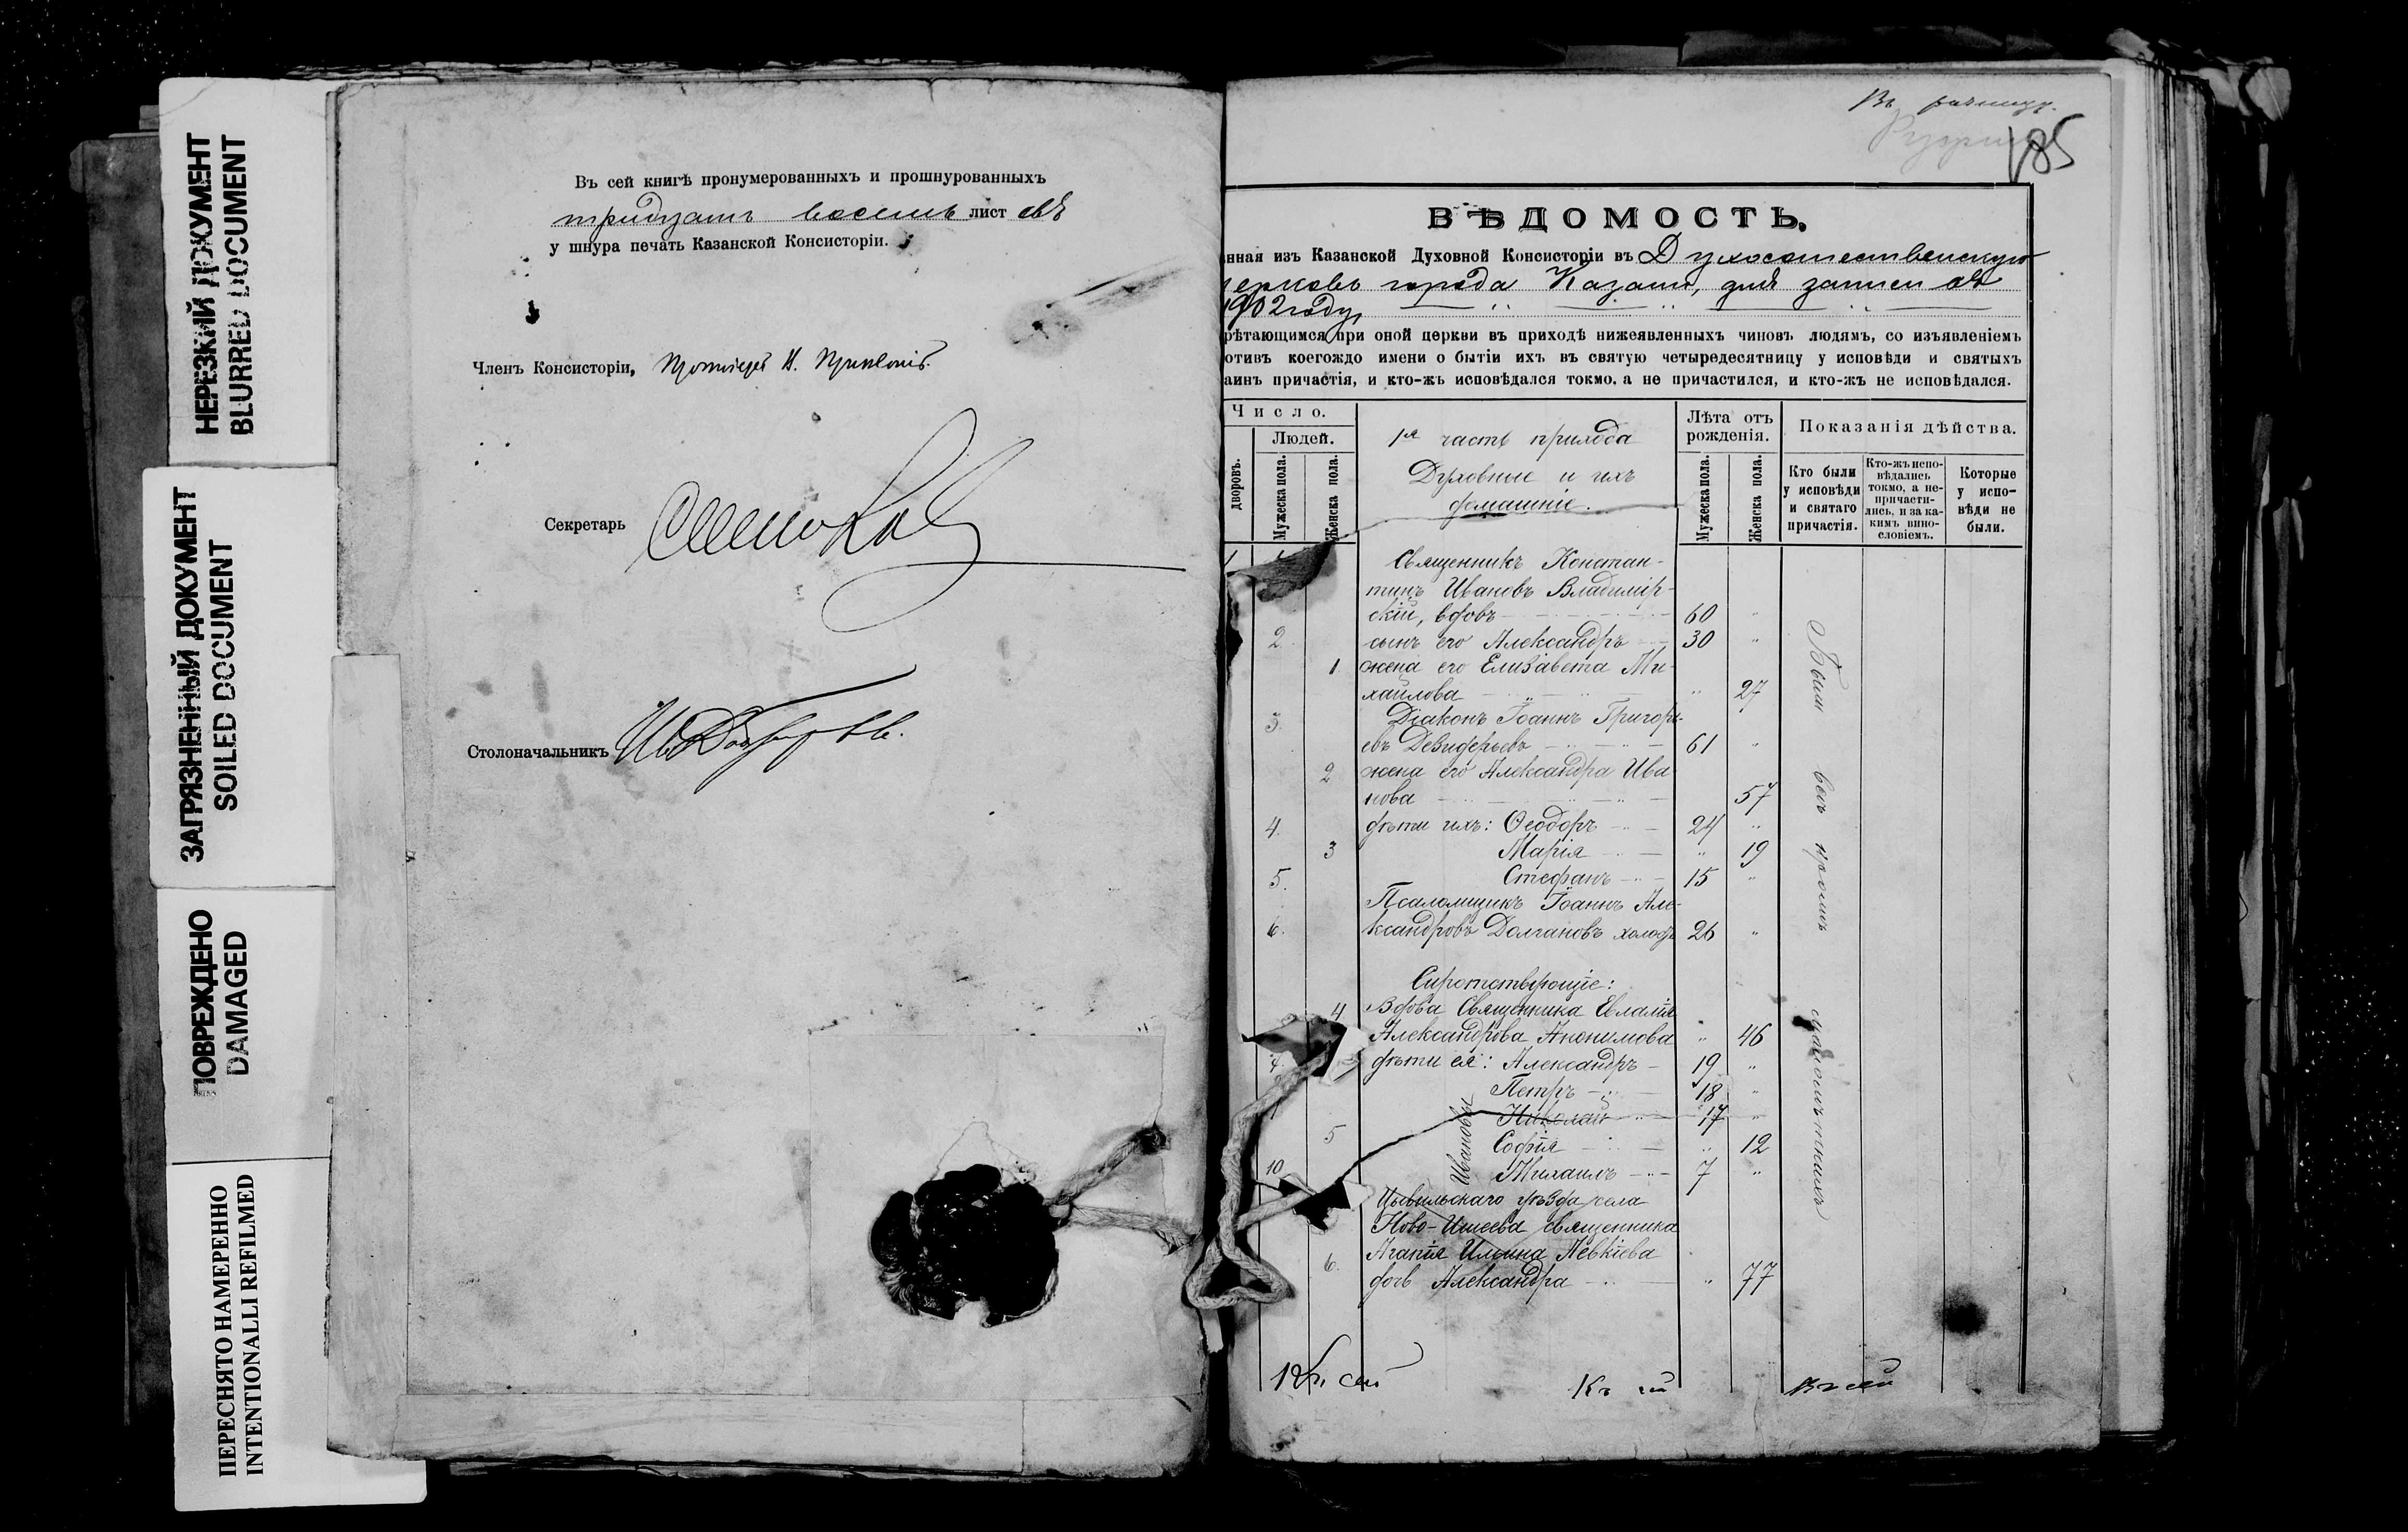 НЕРЕЗКИЙ ДОКУМЕНТ
BLURRED DOCUMENT
ЗАГРЯЗНЕННЫЙ ДОКУМЕНТ
SOILED DOCUMENT
ПОВРЕЖДЕНО
DAMAGED
ПЕРЕСНЯТО НАМЕРЕННО
INTENTIONALLI REFILMED
Въ сей книгѣ пронумерованныхъ и прошнурованныхъ
тридцать восемь лист овъ
у шнура печать Казанской Консисторіи.
Членъ Консисторіи, Протоіерей
Секретарь
Столоначальникъ
185
ВѢДОМОСТЬ,
нная изъ Казанской Духовной Консисторіи въ Духосошественскую
церковь города Казани, для записи въ
1902 году,
рѣтающимся при оной церкви въ приходѣ нижеявленныхъ чиновъ людямъ, со изъявленіемъ
отивъ коегождо имени о бытіи ихъ въ святую четыредесятницу у исповѣди и святыхъ
аинъ причастія, и кто-жъ исповѣдался токмо, а не причастился, и кто-жъ не исповѣдался.
Число.
Людей.
дворовъ.
Мужеска пола.
Женска пола.
1я часть прихода
Духовные и ихъ
домашніе.
Лѣта отъ
рожденія.
Мужеска пола.
Женска пола.
Показанія дѣйства.
Кто были
у исповѣди
и святаго
причастія.
Кто-жъ испо-
вѣдались
токмо, а не-
причасти-
лись, и за ка-
кимъ вино-
словіемъ.
Которые
у испо-
вѣди не
были.
Священникъ Констан-
тинъ Ивановъ Владимір-
скій, вдовъ 60
2. сынъ его Александръ 30
1. жена его Елизавета Ми-
хайлова 27
3. Діаконъ Іоаннъ Григорь-
евъ Дезидерьевъ 61
2 жена его Александра Ива
нова 57
4. дѣти ихъ: Ѳеодоръ 24
3 Марія 19
5. Стефанъ 15
Псаломщикъ Іоаннъ Але-
6. ксандровъ Долгановъ холостъ 26
Сиротствующіе:
4 Вдова Священника Евлалія
Александрова 46
дѣти ея: Александръ 19
Петръ 18
Николай 17
5 Софія 12
10 Михаилъ 7
Ивановы
Цывильскаго уѣзда села
Ново-Ишеева священника
Агапія Ильина Левкіева
6. дочь Александра 77
Были всѣ